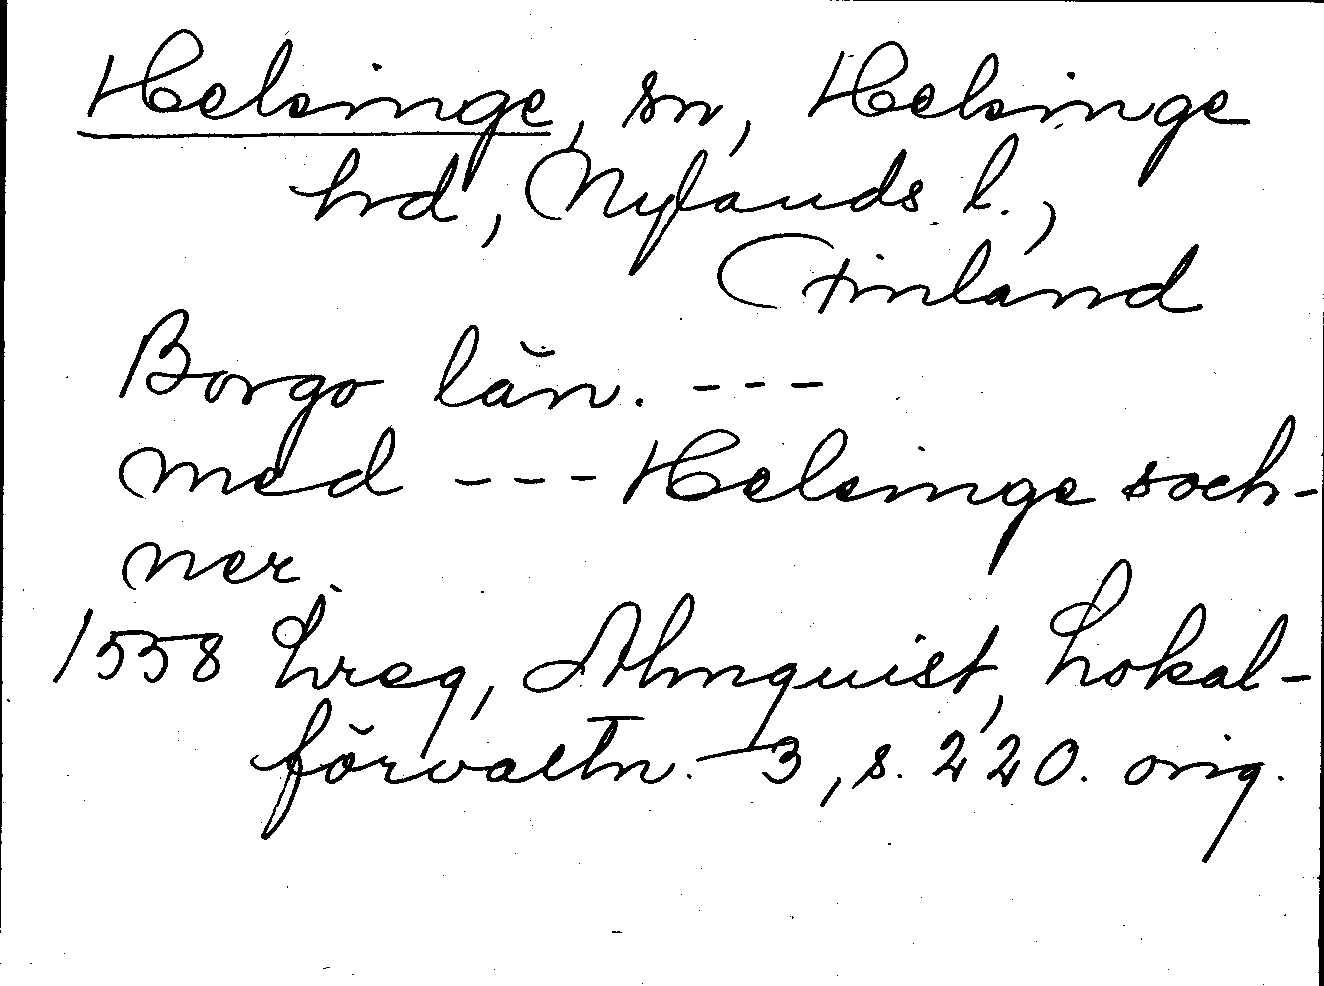 Helsinge, sn, Helsinge
hrd, Nylands l.,
Finland
Borgo län. ---
med --- Helsinge soch-
ner.
1558 Lreg, Almquist, Lokal-
förvaltn. 3, s. 220. orig.